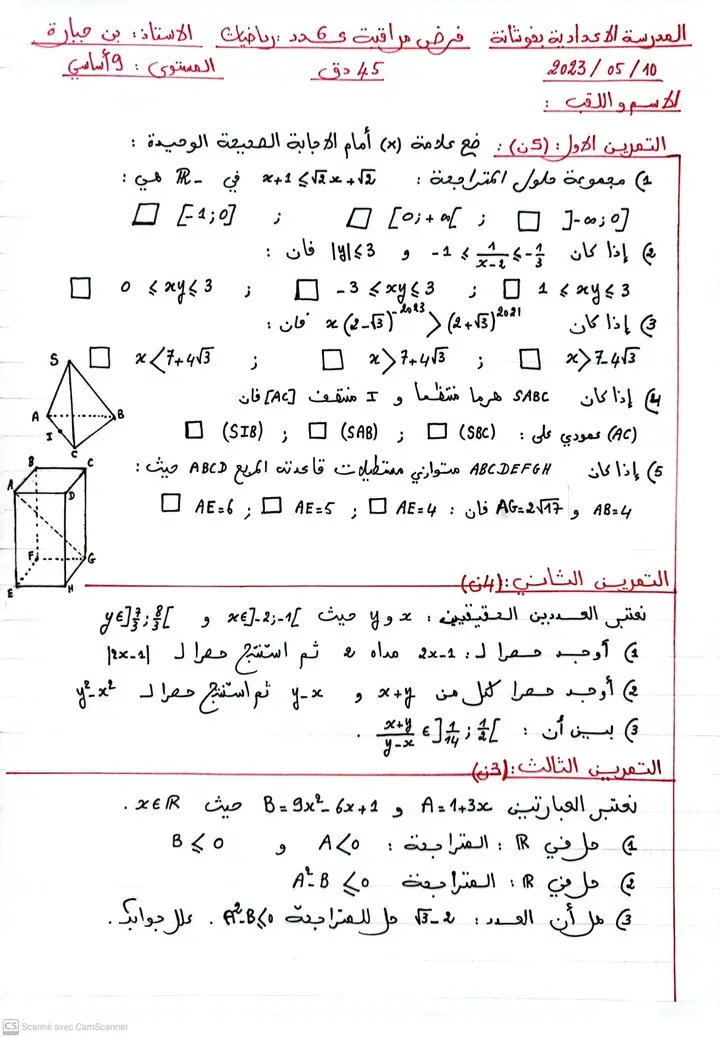 المدرسة الاعدادية بفوشانة فرض مراقبة عـ6ـدد : رياضيات الاستاذ : بن جبارة
2023 / 05 / 10 45 دق المستوى : 9 أساسي
الاسم و اللقب :
التمرين الاول : (5ن) : ضع علامة (x) أمام الاجابة الصحيحة الوحيدة :
1) مجموعة حلول المتراجحة : x+1 ≤ √2x+√2 في ℝ₋ هي :
□ ]-∞;0] ; □ [0;+∞[ ; □ [-1;0]
2) إذا كان -1 ≤ 1/(x-2) ≤ -1/3 و |y| ≤ 3 فان :
□ 1 ≤ xy ≤ 3 ; □ -3 ≤ xy ≤ 3 ; □ 0 ≤ xy ≤ 3
3) إذا كان x(2-√3)^-2023 > (2+√3)^2021 فان :
□ x > 7-4√3 ; □ x > 7+4√3 ; □ x < 7+4√3
4) إذا كان SABC هرما منتظما و I منتصف [AC] فان
(AC) عمودي على : □ (SBC) ; □ (SAB) ; □ (SIB)
5) إذا كان ABCDEFGH متوازي مستطيلات قاعدته المربع ABCD حيث :
AB=4 و AG=2√17 فان : □ AE=4 ; □ AE=5 ; □ AE=6
S
A
B
I
C
B
C
A
D
F
G
E
H
التمرين الثاني : (4ن)
نعتبر العددين الحقيقيين : x و y حيث x∈]-2;-1[ و y∈]7/3;8/3[
1) أوجد حصرا لـ : 2x-1 مداه 2 ثم استنتج حصرا لـ |2x-1|
2) أوجد حصرا لكل من x+y و y-x ثم استنتج حصرا لـ y²-x²
3) بين أن : (x+y)/(y-x) ∈ ]1/14;1/2[ .
التمرين الثالث : (3ن)
نعتبر العبارتين A=1+3x و B=9x²-6x+1 حيث x∈ℝ .
1) حل في ℝ : المتراجحة : A<0 و B ≤ 0
2) حل في ℝ : المتراجحة A²-B ≤ 0
3) هل أن العدد : √3-2 حل للمتراجحة A²-B≤0 . علل جوابك .
CS Scanné avec CamScanner